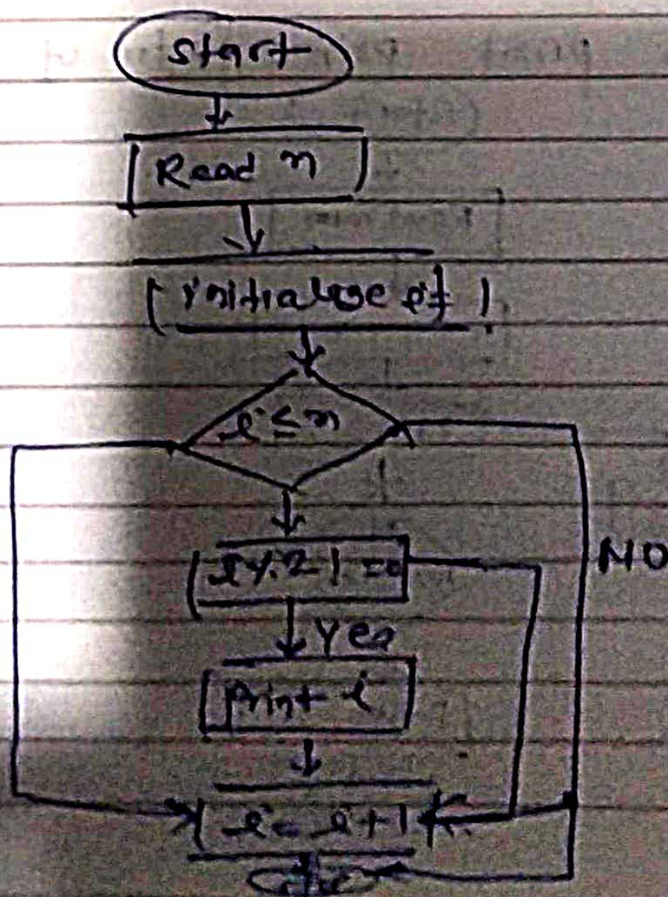 start
Read n
initialize i=1
i ≤ n
i%2!=0
NO
Yes
Print i
i = i+1